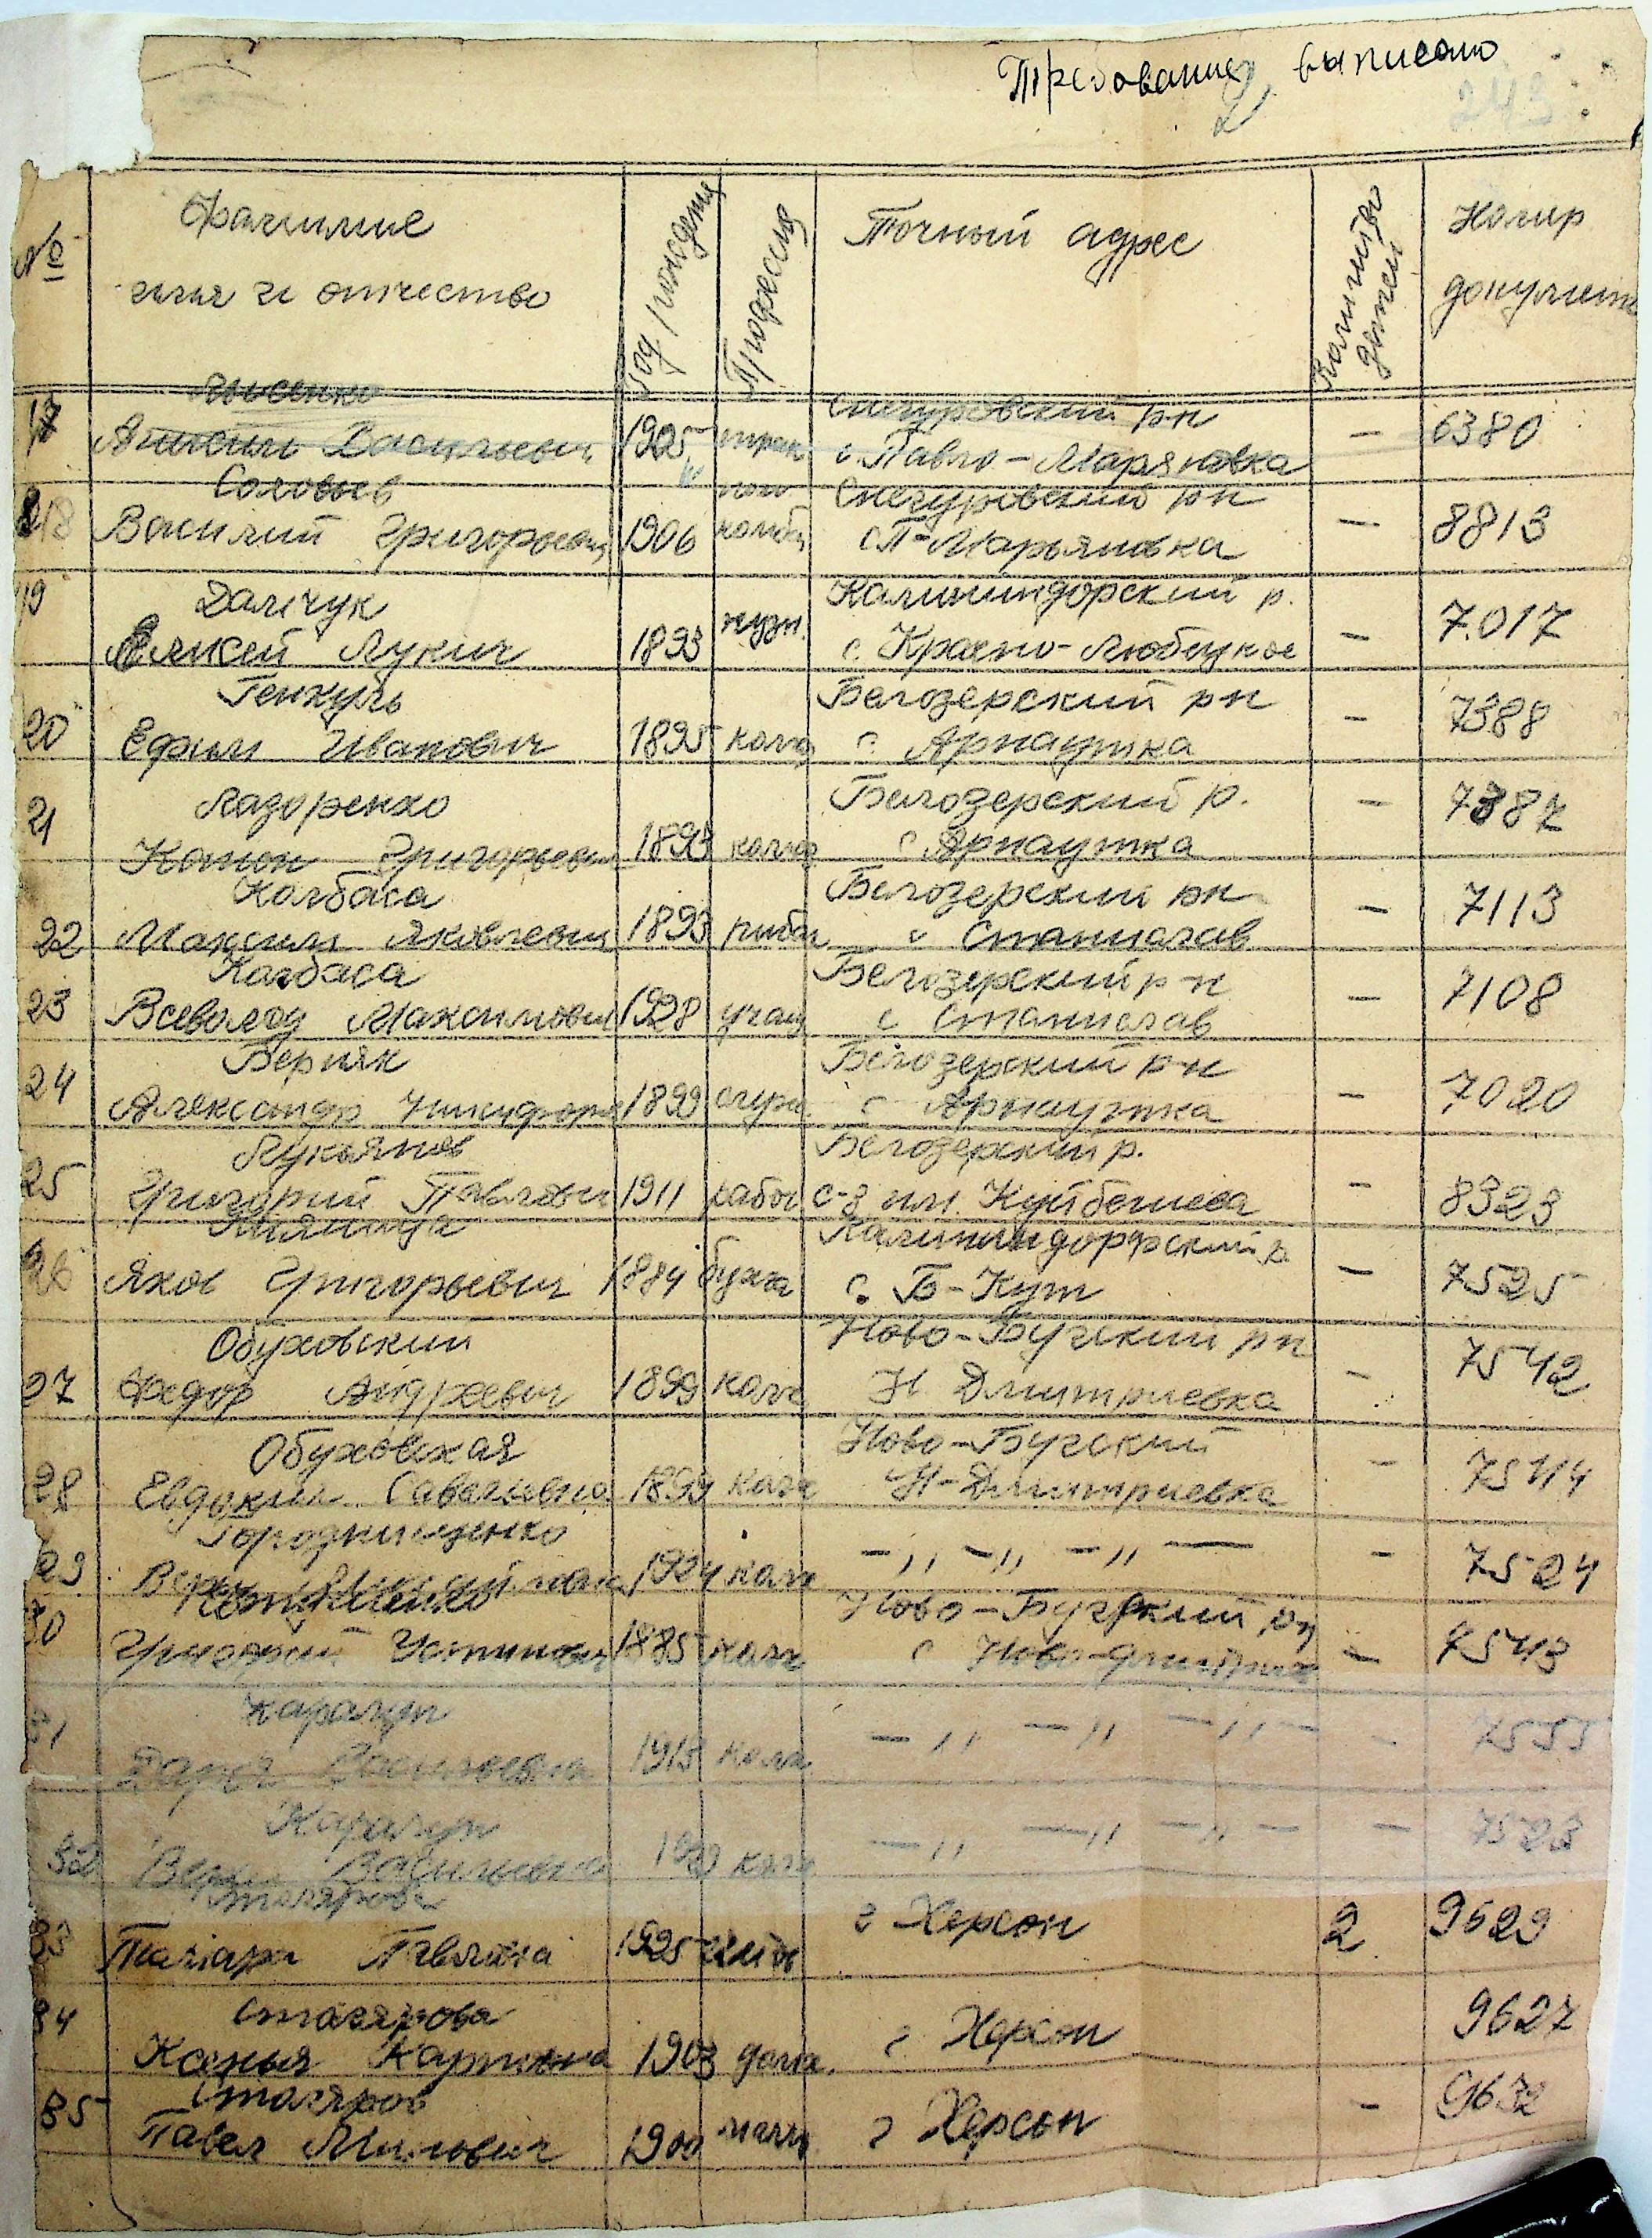 Требование выписано
243
№
Фамилие
имя и отчество
Год рождения
Профессия
Точный адрес
Количество детей
Номер
документа
17
Лысенко
Анисим Васильевич
1925
трак
Снегуровский рн
с. Павло-Маряновка
–
6380
18
Соловьев
Василий Григорьевич
1906
Снегуровский рн
с П-Марьяновка
–
8813
19
Далчук
Алексей Лукич
1893
кузн.
Калининдорский р.
с. Красно-Любецкое
–
7017
20
Генкуль
Ефим Иванович
1895
колх
Белозерский рн
с. Арнаутка
–
7388
21
Лазоренко
Конон Григорьевич
1893
колхоз
Белозерский р.
с Арнаутка
–
7387
22
Колбаса
Максим Яковлевич
1893
рибак
Белозерский рн
с Станислав
–
7113
23
Колбаса
Всеволод Максимович
1928
учащ
Белозерский р-н
с Станислав
–
7108
24
Берняк
Александр Никифоров
1899
служ
Белозерский р-н
с Арнаутка
–
7020
25
Лукьянов
Григорий Павлович
1911
рабоч
Белозерский р.
с-з им. Куйбешева
–
8323
26
Яков Григорьевич
1884
бухга
Калининдорфский р
с. Б-Кут
–
7525
27
Обуховский
Федор Андреевич
1899
колх
Ново-Бугский рн
Н Дмитриевка
–
7542
28
Обуховская
Евдокия Савельевна
1899
колх
Ново-Бугский
Н-Дмитриевка
–
7544
29
Городнищенко
Вера
1924
колх
– ,, – ,, – ,, –
–
7524
30
Григорий Устинович
1885
колх
Ново-Бугский рн
с Ново-Дмитриев
–
7543
31
Карагуп
Дарья Васильевна
1913
колх
– ,, – ,, – ,, –
–
7555
32
Карагуп
Вера Васильевна
колх
– ,, – ,, – ,, –
–
7523
33
Столярова
Тамара Павловна
1925
г Херсон
2
9629
34
Столярова
Ксенья Карповна
1903
домх.
г Херсон
9627
35
Столяров
Павел
1900
г Херсон
–
9632